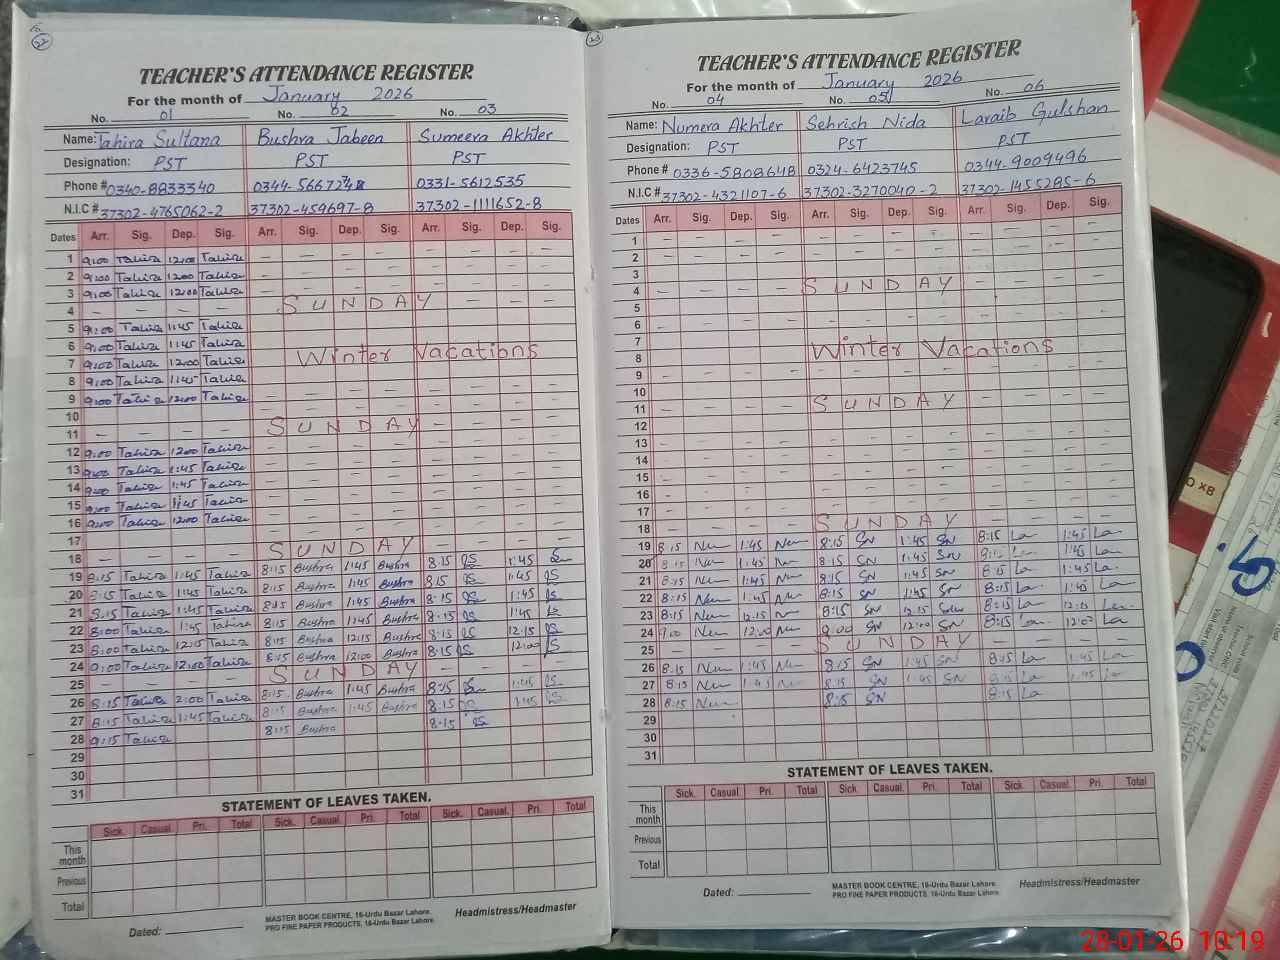 22
TEACHER'S ATTENDANCE REGISTER
For the month of January 2026
No. 01 No. 02 No. 03
Name: Tahira Sultana Bushra Jabeen Sumeera Akhter
Designation: PST PST PST
Phone # 0340-8833340 0344-5667248 0331-5612535
N.I.C # 37302-4765062-2 37302-459697-8 37302-1111652-8
Dates Arr. Sig. Dep. Sig. Arr. Sig. Dep. Sig. Arr. Sig. Dep. Sig.
1 9:00 Tahira 12:00 Tahira - - - - - - - -
2 9:00 Tahira 12:00 Tahira - - - - - - - -
3 9:00 Tahira 12:00 Tahira - - - - - - - -
4 - - - - SUNDAY
5 9:00 Tahira 1:45 Tahira
6 9:00 Tahira 1:45 Tahira
7 9:00 Tahira 12:00 Tahira Winter Vacations
8 9:00 Tahira 1:45 Tahira
9 9:00 Tahira 12:00 Tahira - - - - - - - -
10
11 - - - - SUNDAY
12 9:00 Tahira 12:00 Tahira - - - - - - - -
13 9:00 Tahira 1:45 Tahira - - - - - - - -
14 9:00 Tahira 1:45 Tahira - - - - - - - -
15 9:00 Tahira 1:45 Tahira - - - - - - - -
16 9:00 Tahira 12:00 Tahira - - - - - - - -
17
18 - - - - SUNDAY
19 8:15 Tahira 1:45 Tahira 8:15 Bushra 1:45 Bushra 8:15 1:45
20 8:15 Tahira 1:45 Tahira 8:15 Bushra 1:45 Bushra 8:15 1:45
21 8:15 Tahira 1:45 Tahira 8:15 Bushra 1:45 Bushra 8:15 1:45
22 8:00 Tahira 1:45 Tahira 8:15 Bushra 1:45 Bushra 8:15 1:45
23 8:00 Tahira 12:15 Tahira 8:15 Bushra 12:15 Bushra 8:15 12:15
24 9:00 Tahira 12:00 Tahira 8:15 Bushra 12:00 Bushra 8:15 12:00
25 - - - - SUNDAY
26 8:15 Tahira 2:00 Tahira 8:15 Bushra 1:45 Bushra 8:15 1:45
27 8:15 Tahira 1:45 Tahira 8:15 Bushra 1:45 Bushra 8:15 1:45
28 9:15 Tahira 8:15 Bushra 8:15
29
30
31
STATEMENT OF LEAVES TAKEN.
Sick. Casual. Pri. Total Sick. Casual. Pri. Total Sick. Casual. Pri. Total
This month
Previous
Total
Dated:
MASTER BOOK CENTRE, 16-Urdu Bazar Lahore.
PRO FINE PAPER PRODUCTS, 16-Urdu Bazar Lahore.
Headmistress/Headmaster
23
TEACHER'S ATTENDANCE REGISTER
For the month of January 2026
No. 04 No. 05 No. 06
Name: Numera Akhter Sehrish Nida Laraib Gulshan
Designation: PST PST PST
Phone # 0336-5808648 0324-6423745 0344-9009496
N.I.C # 37302-4321107-6 37302-3270040-2 37302-1455285-6
Dates Arr. Sig. Dep. Sig. Arr. Sig. Dep. Sig. Arr. Sig. Dep. Sig.
1 - - - - - - - - - - - -
2 - - - - - - - - - - - -
3
4 - - - - SUNDAY
5
6
7
8 Winter Vacations
9 - - - - - - - - - - - -
10
11 - - - - SUNDAY
12
13 - - - - - - - - - - - -
14 - - - - - - - - - - - -
15 - - - - - - - - - - - -
16 - - - - - - - - - - - -
17
18 - - - - SUNDAY
19 8:15 Num 1:45 Num 8:15 SN 1:45 SN 8:15 La 1:45 La
20 8:15 Num 1:45 Num 8:15 SN 1:45 SN 8:15 La 1:45 La
21 8:15 Num 1:45 Num 8:15 SN 1:45 SN 8:15 La 1:45 La
22 8:15 Num 1:45 Num 8:15 SN 1:45 SN 8:15 La 1:45 La
23 8:15 Num 12:15 Num 8:15 SN 12:15 SN 8:15 La 12:15 La
24 9:00 Num 12:00 Num 9:00 SN 12:00 SN 8:15 La 12:00 La
25 - - - - SUNDAY
26 8:15 Num 1:45 Num 8:15 SN 1:45 SN 8:15 La 1:45 La
27 8:15 Num 1:45 Num 8:15 SN 1:45 SN 8:15 La 1:45 La
28 8:15 Num 8:15 SN 8:15 La
29
30
31
STATEMENT OF LEAVES TAKEN.
Sick. Casual. Pri. Total Sick. Casual. Pri. Total Sick. Casual. Pri. Total
This month
Previous
Total
Dated:
MASTER BOOK CENTRE, 16-Urdu Bazar Lahore.
PRO FINE PAPER PRODUCTS, 16-Urdu Bazar Lahore.
Headmistress/Headmaster
28-01-26 10:19